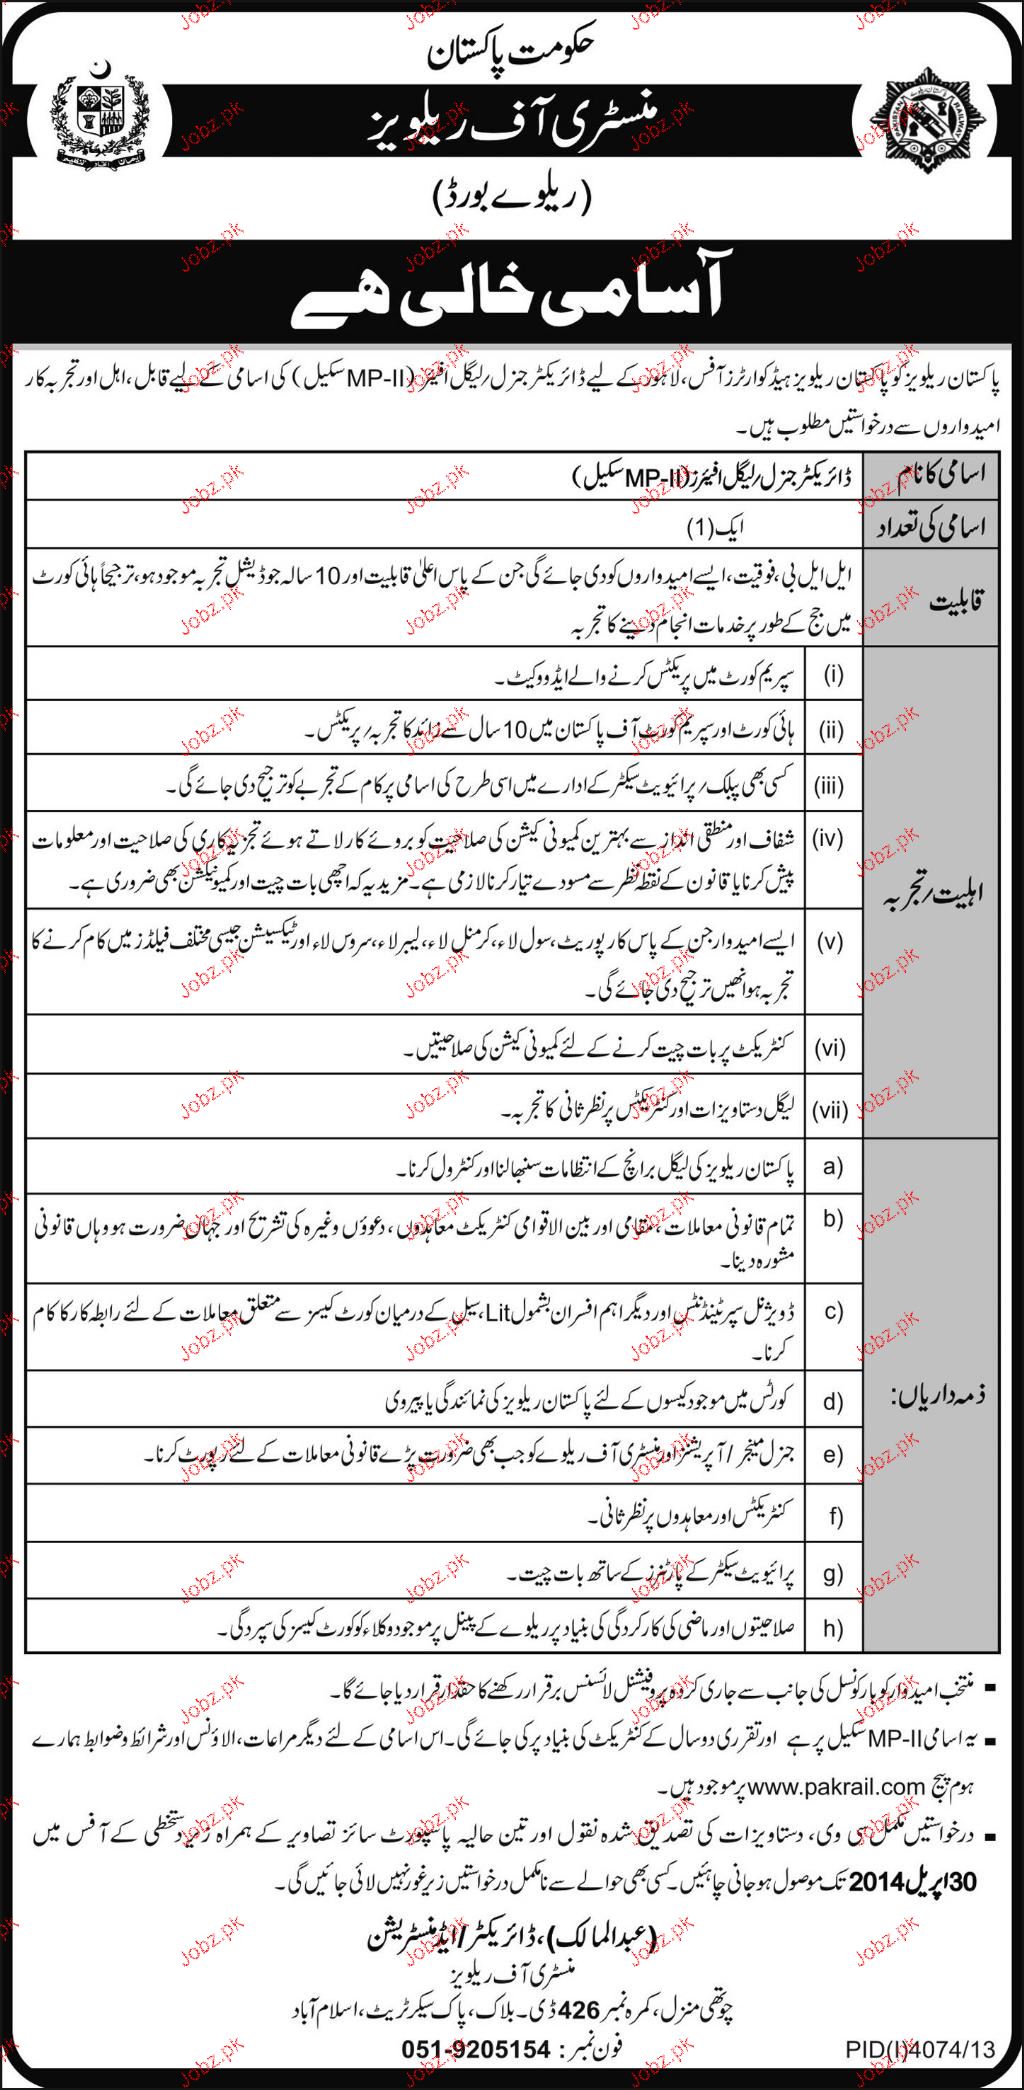 حکومت پاکستان
منسٹری آف ریلویز
(ریلوے بورڈ)
آسامی خالی ھے
پاکستان ریلویز کو پاکستان ریلویز ہیڈ کوارٹرز آفس، لاہور کے لیے ڈائریکٹر جنرل/لیگل افیئرز (MP-II سکیل) کی اسامی کے لیے قابل، اہل اور تجربہ کار
امیدواروں سے درخواستیں مطلوب ہیں۔
اسامی کا نام ڈائریکٹر جنرل/لیگل افیئرز (MP-II سکیل)
اسامی کی تعداد ایک (1)
قابلیت
ایل ایل بی، فوقیت، ایسے امیدواروں کو دی جائے گی جن کے پاس اعلیٰ قابلیت اور 10 سالہ جوڈیشل تجربہ موجود ہو، ترجیحاً ہائی کورٹ
میں جج کے طور پر خدمات انجام دینے کا تجربہ
اہلیت/تجربہ
(i) سپریم کورٹ میں پریکٹس کرنے والے ایڈووکیٹ۔
(ii) ہائی کورٹ اور سپریم کورٹ آف پاکستان میں 10 سال سے زائد کا تجربہ/پریکٹس۔
(iii) کسی بھی پبلک/پرائیویٹ سیکٹر کے ادارے میں اسی طرح کی اسامی پر کام کے تجربے کو ترجیح دی جائے گی۔
(iv) شفاف اور منطقی انداز سے بہترین کمیونی کیشن کی صلاحیت کو بروئے کار لاتے ہوئے تجزیہ کاری کی صلاحیت اور معلومات
پیش کرنا یا قانون کے نقطہ نظر سے مسودے تیار کرنا لازمی ہے۔ مزید یہ کہ اچھی بات چیت اور کمیونیکشن بھی ضروری ہے۔
(v) ایسے امیدوار جن کے پاس کارپوریٹ، سول لاء، کرمنل لاء، لیبر لاء، سروس لاء اور ٹیکسیشن جیسی مختلف فیلڈز میں کام کرنے کا
تجربہ ہو انھیں ترجیح دی جائے گی۔
(vi) کنٹریکٹ پر بات چیت کرنے کے لئے کمیونی کیشن کی صلاحیتیں۔
(vii) لیگل دستاویزات اور کنٹریکٹس پر نظر ثانی کا تجربہ۔
ذمہ داریاں:
a) پاکستان ریلویز کی لیگل برانچ کے انتظامات سنبھالنا اور کنٹرول کرنا۔
b) تمام قانونی معاملات، مقامی اور بین الاقوامی کنٹریکٹ معاہدوں، دعوؤں وغیرہ کی تشریح اور جہاں ضرورت ہو وہاں قانونی
مشورہ دینا۔
c) ڈویژنل سپرٹینڈنٹس اور دیگر اہم افسران بشمول Lit، سیل کے درمیان کورٹ کیسز سے متعلق معاملات کے لئے رابطہ کار کا کام
کرنا۔
d) کورٹس میں موجود کیسوں کے لئے پاکستان ریلویز کی نمائندگی یا پیروی
e) جنرل مینجر/آپریشنز اور منسٹری آف ریلوے کو جب بھی ضرورت پڑے قانونی معاملات کے لئے رپورٹ کرنا۔
f) کنٹریکٹس اور معاہدوں پر نظر ثانی۔
g) پرائیویٹ سیکٹر کے پارٹنرز کے ساتھ بات چیت۔
h) صلاحیتوں اور ماضی کی کارکردگی کی بنیاد پر ریلوے کے پینل پر موجود وکلاء کو کورٹ کیسز کی سپردگی۔
■ منتخب امیدوار کو بار کونسل کی جانب سے جاری کردہ پروفیشنل لائسنس برقرار رکھنے کا حقدار قرار دیا جائے گا۔
■ یہ اسامی MP-II سکیل پر ہے اور تقرری دو سال کے کنٹریکٹ کی بنیاد پر کی جائے گی۔ اس اسامی کے لئے دیگر مراعات، الاؤنس اور شرائط و ضوابط ہمارے
ہوم پیج www.pakrail.com پر موجود ہیں۔
■ درخواستیں مکمل سی وی، دستاویزات کی تصدیق شدہ نقول اور تین حالیہ پاسپورٹ سائز تصاویر کے ہمراہ زیر دستخطی کے آفس میں
30 اپریل 2014 تک موصول ہو جانی چاہئیں۔ کسی بھی حوالے سے نامکمل درخواستیں زیر غور نہیں لائی جائیں گی۔
(عبدالمالک)، ڈائریکٹر/ایڈمنسٹریشن
منسٹری آف ریلویز
چوتھی منزل، کمرہ نمبر 426 ڈی۔ بلاک، پاک سیکرٹریٹ، اسلام آباد
فون نمبر: 051-9205154
PID(I)4074/13
Jobz.pk